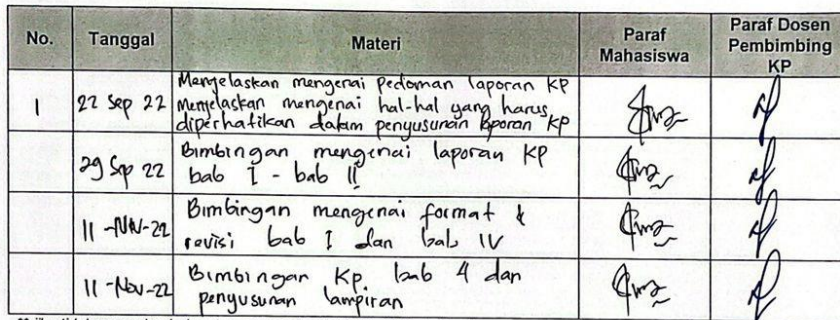 No. Tanggal Materi Paraf Mahasiswa Paraf Dosen Pembimbing KP
1 22 Sep 22 Menjelaskan mengenai pedoman laporan KP
menjelaskan mengenai hal-hal yang harus
diperhatikan dalam penyusunan laporan KP
29 Sep 22 Bimbingan mengenai laporan KP
bab I - bab II
11-Nov-22 Bimbingan mengenai format &
revisi bab I dan bab IV
11-Nov-22 Bimbingan KP bab 4 dan
penyusunan lampiran